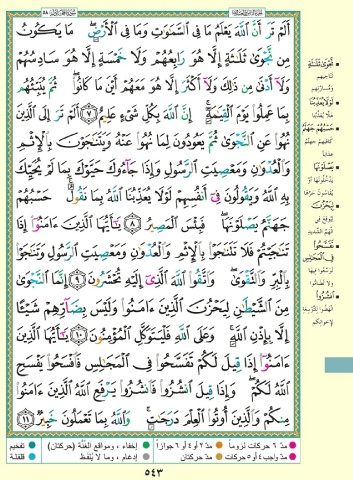 أَلَمْ تَرَ أَنَّ ٱللَّهَ يَعْلَمُ مَا فِى ٱلسَّمَٰوَٰتِ وَمَا فِى ٱلْأَرْضِ ۖ مَا يَكُونُ
مِن نَّجْوَىٰ ثَلَٰثَةٍ إِلَّا هُوَ رَابِعُهُمْ وَلَا خَمْسَةٍ إِلَّا هُوَ سَادِسُهُمْ
وَلَآ أَدْنَىٰ مِن ذَٰلِكَ وَلَآ أَكْثَرَ إِلَّا هُوَ مَعَهُمْ أَيْنَ مَا كَانُوا۟ ۖ ثُمَّ يُنَبِّئُهُم
بِمَا عَمِلُوا۟ يَوْمَ ٱلْقِيَٰمَةِ ۚ إِنَّ ٱللَّهَ بِكُلِّ شَىْءٍ عَلِيمٌ ٧ أَلَمْ تَرَ إِلَى ٱلَّذِينَ
نُهُوا۟ عَنِ ٱلنَّجْوَىٰ ثُمَّ يَعُودُونَ لِمَا نُهُوا۟ عَنْهُ وَيَتَنَٰجَوْنَ بِٱلْإِثْمِ
وَٱلْعُدْوَٰنِ وَمَعْصِيَتِ ٱلرَّسُولِ وَإِذَا جَآءُوكَ حَيَّوْكَ بِمَا لَمْ يُحَيِّكَ
بِهِ ٱللَّهُ وَيَقُولُونَ فِىٓ أَنفُسِهِمْ لَوْلَا يُعَذِّبُنَا ٱللَّهُ بِمَا نَقُولُ ۚ حَسْبُهُمْ
جَهَنَّمُ يَصْلَوْنَهَا ۖ فَبِئْسَ ٱلْمَصِيرُ ٨ يَٰٓأَيُّهَا ٱلَّذِينَ ءَامَنُوٓا۟ إِذَا
تَنَٰجَيْتُمْ فَلَا تَتَنَٰجَوْا۟ بِٱلْإِثْمِ وَٱلْعُدْوَٰنِ وَمَعْصِيَتِ ٱلرَّسُولِ وَتَنَٰجَوْا۟
بِٱلْبِرِّ وَٱلتَّقْوَىٰ ۖ وَٱتَّقُوا۟ ٱللَّهَ ٱلَّذِىٓ إِلَيْهِ تُحْشَرُونَ ٩ إِنَّمَا ٱلنَّجْوَىٰ
مِنَ ٱلشَّيْطَٰنِ لِيَحْزُنَ ٱلَّذِينَ ءَامَنُوا۟ وَلَيْسَ بِضَآرِّهِمْ شَيْـًٔا
إِلَّا بِإِذْنِ ٱللَّهِ ۚ وَعَلَى ٱللَّهِ فَلْيَتَوَكَّلِ ٱلْمُؤْمِنُونَ ١٠ يَٰٓأَيُّهَا ٱلَّذِينَ
ءَامَنُوٓا۟ إِذَا قِيلَ لَكُمْ تَفَسَّحُوا۟ فِى ٱلْمَجَٰلِسِ فَٱفْسَحُوا۟ يَفْسَحِ
ٱللَّهُ لَكُمْ ۖ وَإِذَا قِيلَ ٱنشُزُوا۟ فَٱنشُزُوا۟ يَرْفَعِ ٱللَّهُ ٱلَّذِينَ ءَامَنُوا۟
مِنكُمْ وَٱلَّذِينَ أُوتُوا۟ ٱلْعِلْمَ دَرَجَٰتٍ ۚ وَٱللَّهُ بِمَا تَعْمَلُونَ خَبِيرٌ ١١
نَجْوَىٰ ثَلَاثَةٍ
حَسْبُهُمْ جَهَنَّمُ
يَصْلَوْنَهَا
لِيَحْزُنَ
تَفَسَّحُوا
فِي الْمَجَالِسِ
انشُزُوا
مدّ ٦ حركات لزوماً مدّ ٢ أو ٤ أو ٦ جوازاً إخفاء، ومواقع الغنّة (حركتان) تفخيم
مدّ واجب ٤ أو ٥ حركات مدّ حركتان إدغام، وما لا يُلفظ قلقلة
٥٤٣